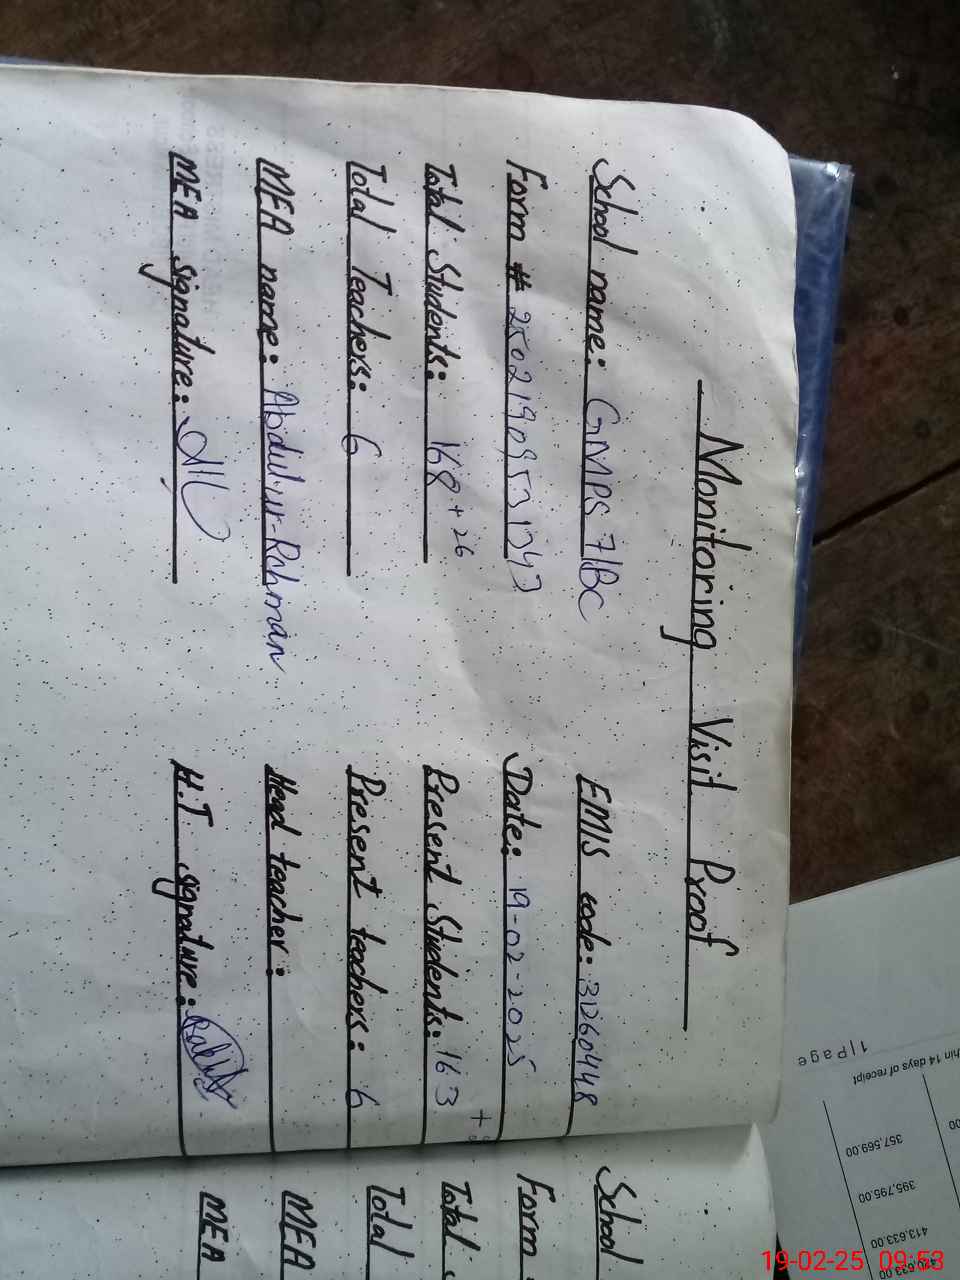 Monitoring Visit Proof
School name: GMPS 71BC EMIS code: 31260448
Form # 25021909531343 Date: 19-02-2025
Total Students: 168 + 26 Present Students: 163 +
Total Teachers: 6 Present teachers: 6
MEA name: Abdul-ur-Rehman Head teacher:
MEA signature: H.T signature:
School
Form
Total
Total
MEA
MEA
1 | Page
hin 14 days of receipt
357,569.00
395,795.00
413,633.00
19-02-25 09:53